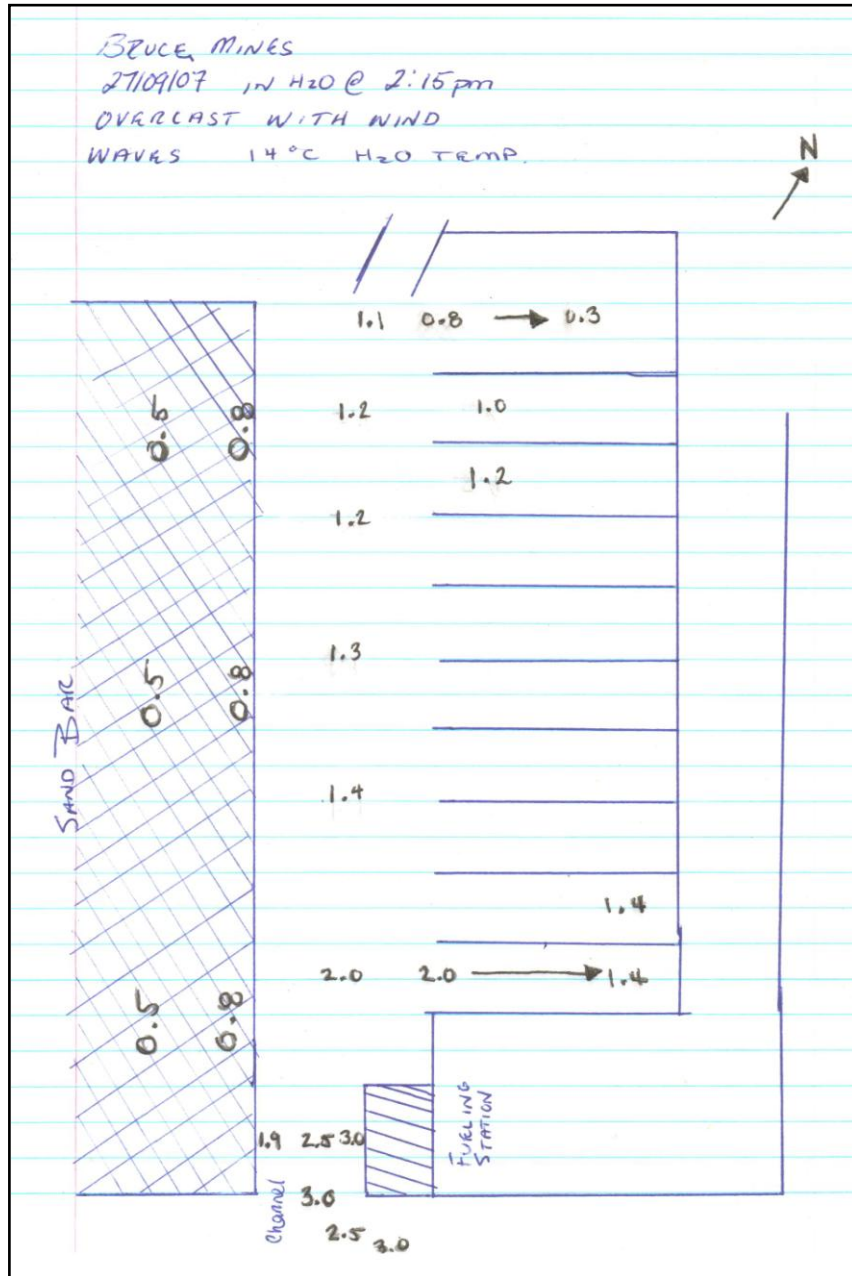 BRUCE MINES
27/09/07 IN H2O @ 2:15pm
OVERCAST WITH WIND
WAVES 14°C H2O TEMP.
N
1.1 0.8 → 0.3
0.5 0.8 1.2 1.0
1.2
1.2
1.3
0.5 0.8
SAND BAR
1.4
1.4
2.0 2.0 → 1.4
0.5 0.8
1.9 2.5 3.0
FUELING
STATION
Channel
3.0
2.5 3.0